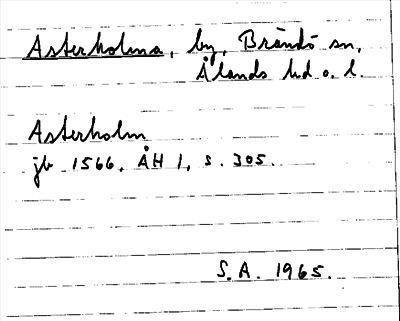 Asterholma, by, Brändö sn,
Ålands hd o. l.
Asterholm
jb 1566, ÅH 1, s. 305.
S. A. 1965.